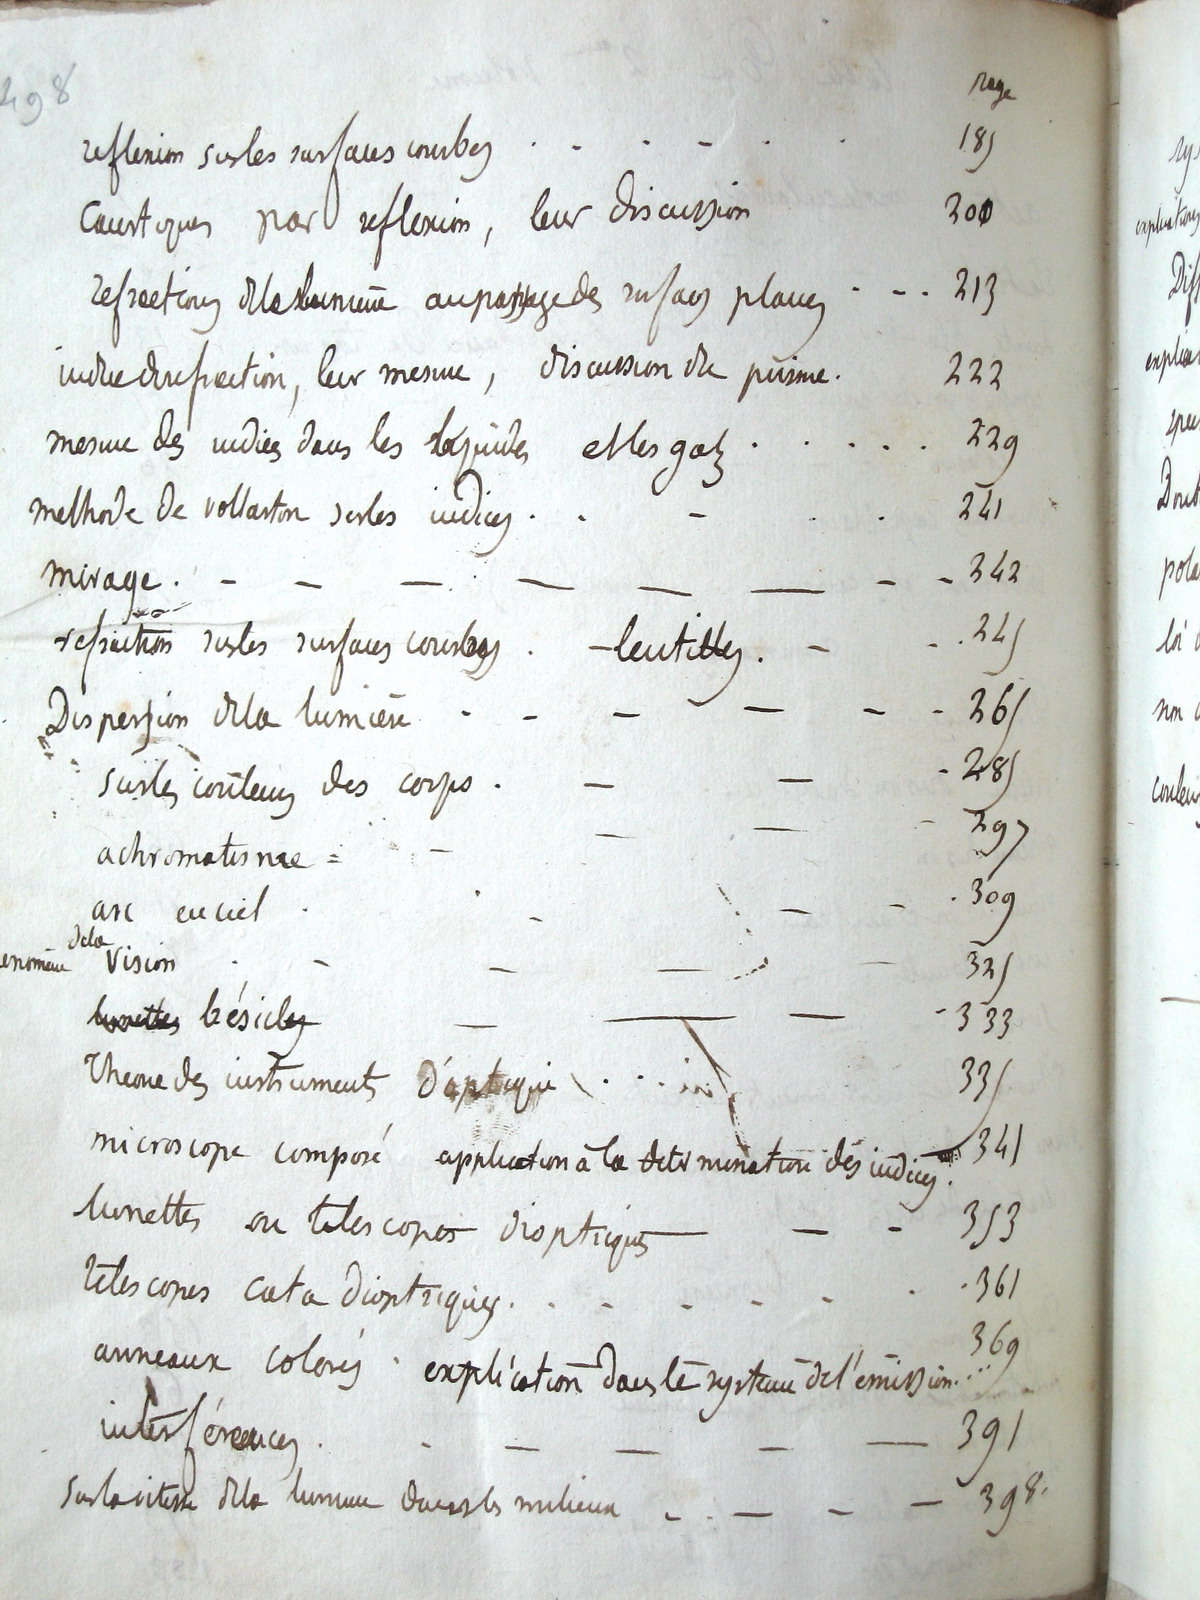 498
page
reflexion sur les surfaces courbes 185
Caustiques par reflexion, leur discussion 200
refractions de la lumière au passage des surfaces planes 213
indice de refraction, leur mesure, discussion du prisme. 222
mesure des indices dans les liquides et les gaz 229
methode de vollaston sur les indices 241
mirage 242
refraction sur les surfaces courbes - lentilles. 245
Dispersion de la lumière 265
sur les couleurs des corps 285
achromatisme 297
arc en ciel 309
de la
vision 325
lunettes bésicles 333
theorie des instruments d'optique 335
microscope composé application à la determination des indices. 341
lunettes ou telescopes dioptriques 353
telescopes cata dioptriques 361
anneaux colorés explication dans le systeme de l'émission 369
interférences 391
sur la vitesse de la lumiere dans les milieux 398.